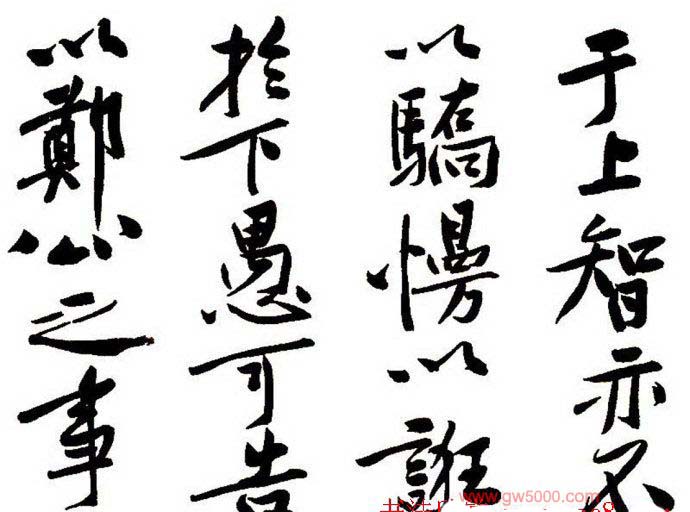 于上智亦不
以驕慢以誑
於下愚可告
以鄭公之事
www.gw5000.com